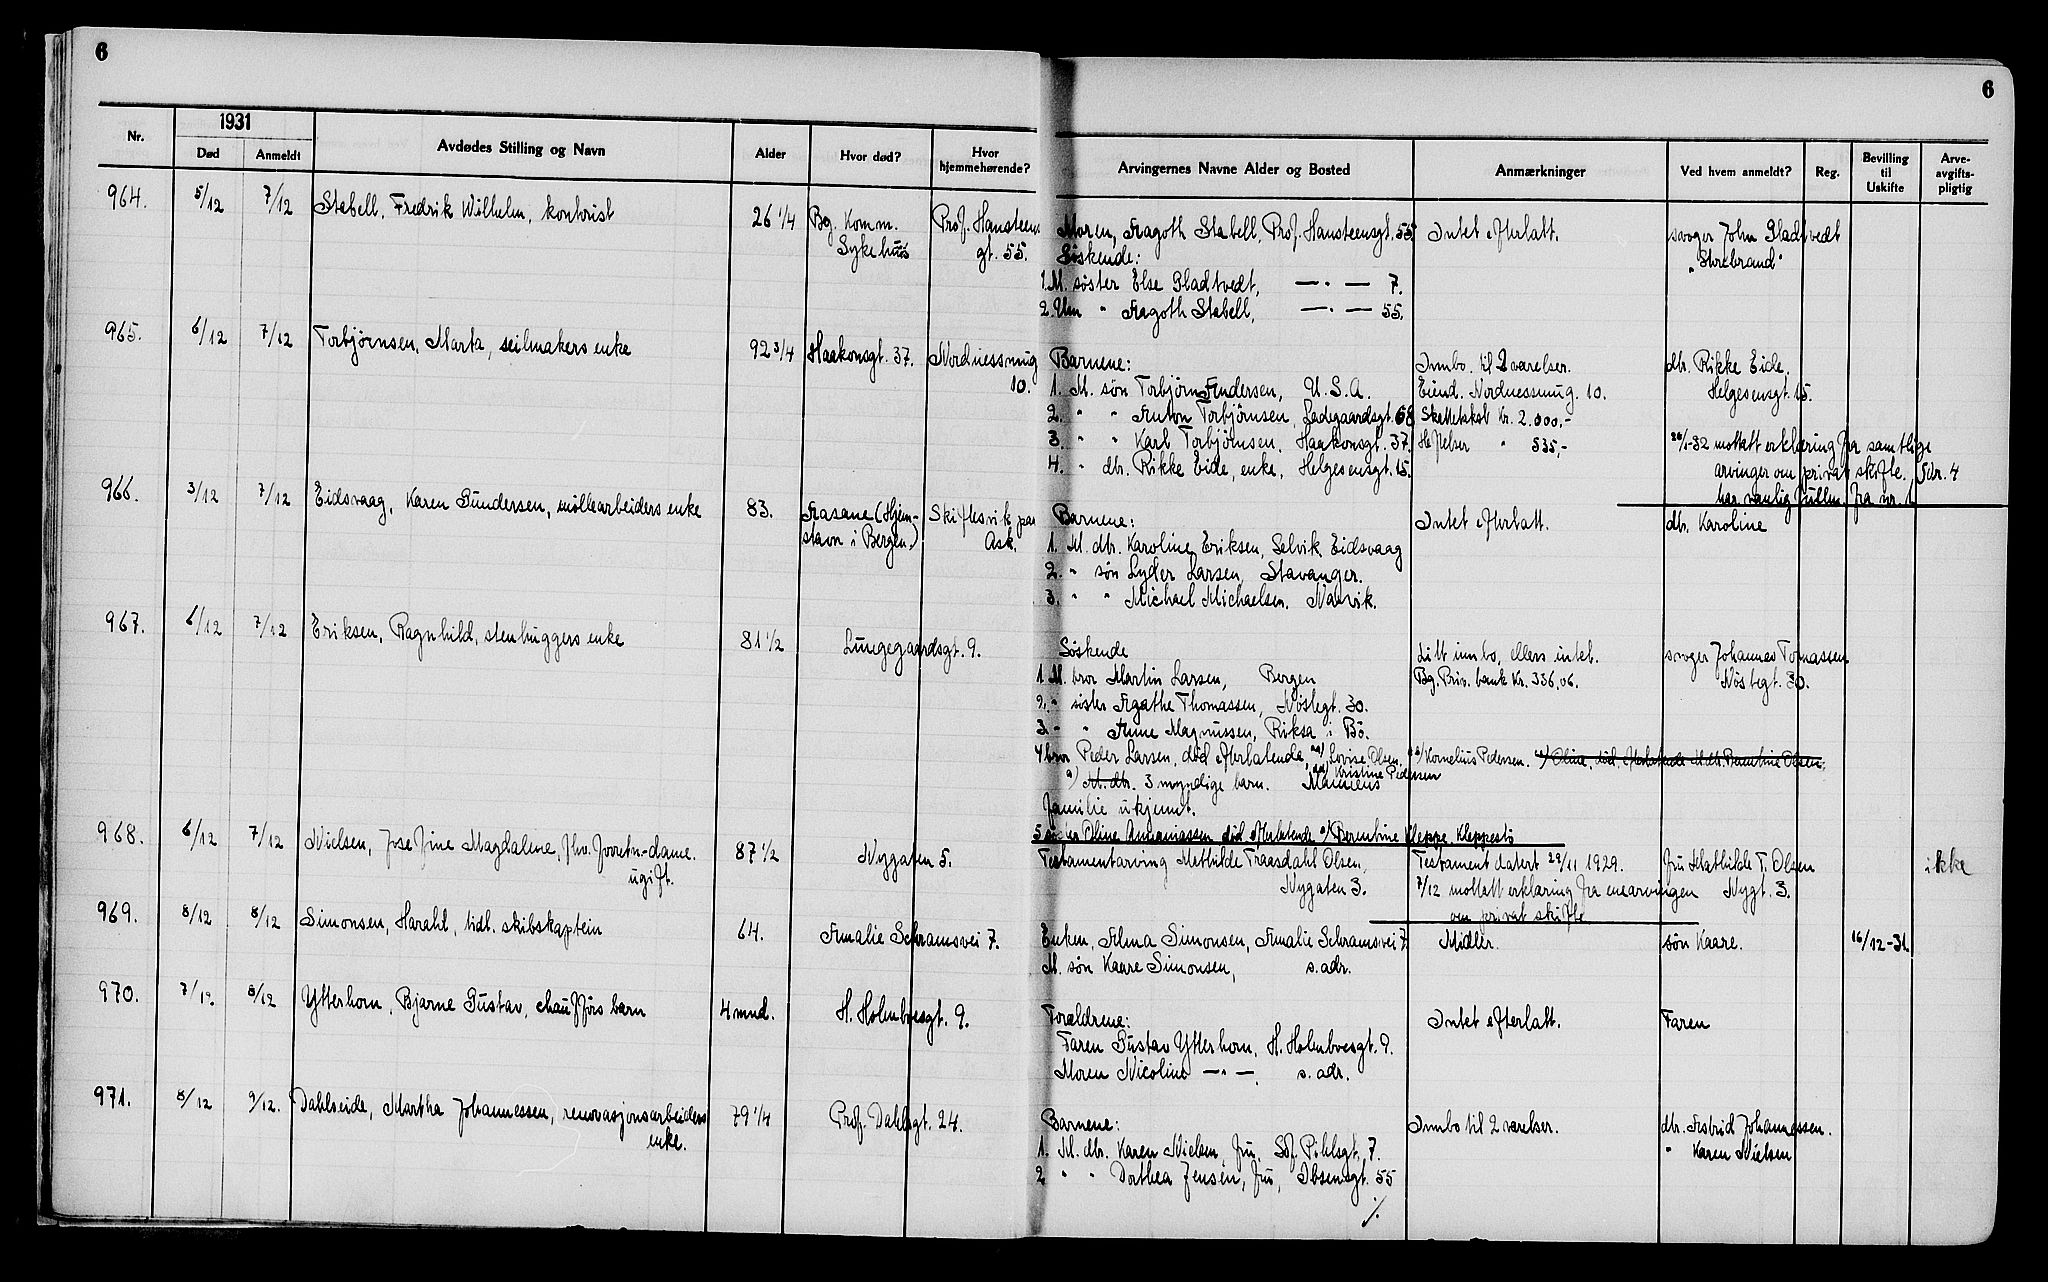 6
6
Nr.
1931
Død
Anmeldt
Avdødes Stilling og Navn
Alder
Hvor død?
Hvor hjemmehørende?
Arvingernes Navne Alder og Bosted
Anmærkninger
Ved hvem anmeldt?
Reg.
Bevilling til Uskifte
Arve-avgifts-pligtig
964. 5/12 7/12 Stabell, Fredrik Wilhelm, kontorist 26 1/4 Bg. Komm. Sykehus Prof. Hansteens gt. 55.
Moren, Aagoth Stabell, Prof. Hansteensgt. 55. Intet efterlatt. svoger John Gladtvedt
Søskende: "Storebrand"
1. M. søster Else Gladtvedt, — " — 7.
2. Um " Aagoth Stabell, — " — 55.
965. 6/12 7/12 Torbjørnsen, Marta, seilmakers enke 92 3/4 Haakonsgt. 37. Nordnessmug 10.
Barnene: Innbo til 2 værelser. dtr. Rikke Eide,
1. M. søn Torbjørn Andersen, U.S.A. Eiend. Nordnessmug. 10. Helgesensgt. 15.
2. " " Anton Torbjørnsen, Ladegaardsgt. 68 Skattetakst Kr. 2.000,-
3. " " Karl Torbjørnsen, Haakonsgt. 37. Heftelser " 535,- 26/1-32 mottatt erklæring fra samtlige
4. " dtr. Rikke Eide, enke, Helgesensgt. 15. arvinger om privat skifte. Fdr. 4
har vanlig fullm. fra nr. 1
966. 3/12 7/12 Eidsvaag, Karen Gundersen, møllearbeiders enke 83. Aasane (Hjem-stavn i Bergen.) Skiftesvik paa Ask.
Barnene: Intet efterlatt. dtr. Karoline
1. M. dtr. Karoline Eriksen, Selvik, Eidsvaag
2. " søn Lyder Larsen, Stavanger.
3. " " Michael Michaelsen. Narvik.
967. 6/12 7/12 Eriksen, Ragnhild, stenhuggers enke 81 1/2 Lungegaardsgt. 9.
Søskende Litt innbo, ellers intet. svoger Johannes Tomassen
1. M. bror Martin Larsen, Bergen Bg. Priv. bank Kr. 336,06. Nøstegt. 30.
2. " søster Agathe Thomassen, Nøstegt. 30.
3. " " Anne Magnussen, Riksa i Bö.
4 bror Peder Larsen, død efterlatende, Lovise Olsen, Kornelius Pedersen. Oline, død, efterlatende M. dtr. Berntine Olsen,
a) M. dtr. 3 myndige barn. Kristine Pedersen
familie ukjent.
5 søster Oline Annaniassen død efterlatende a) Berentine Kleppe. Kleppestö
968. 6/12 7/12 Nielsen, Josefine Magdalene, fhv. forretn-dame. ugift. 87 1/2 Nygaten 5.
Testamentarving Mathilde Traasdahl Olsen, Testament datert 29/11 1929. fru Mathilde T. Olsen ikke
Nygaten 3. 7/12 mottatt erklæring fra enearvingen Nygt. 3.
om privat skifte
969. 8/12 8/12 Simonsen, Harald, tidl. skibskaptein 64. Amalie Schramsvei 7.
Enken, Alma Simonsen, Amalie Schramsvei 7. Midler. søn Kaare. 16/12-31
M. søn Kaare Simonsen, s. adr.
970. 7/12. 8/12 Ytterhorn, Bjarne Gustav, chauffførs barn 4 mnd. H. Holmboesgt. 9.
Forældrene: Intet efterlatt. Faren
Faren Gustav Ytterhorn, H. Holmboesgt. 9.
Moren Nicoline — " —, s. adr.
971. 8/12 9/12. Dahlseide, Martha Johannessen, renovasjonsarbeiders enke. 79 1/4 Prof. Dahlsgt. 24.
Barnene: Innbo til 2 værelser. dtr. Astrid Johannessen.
1. M. dtr. Karen Nielsen, fru, Sof. Pihlsgt. 7. " Karen Nielsen
2 " " Dorthea Jensen, fru, Ibsensgt. 55
./.